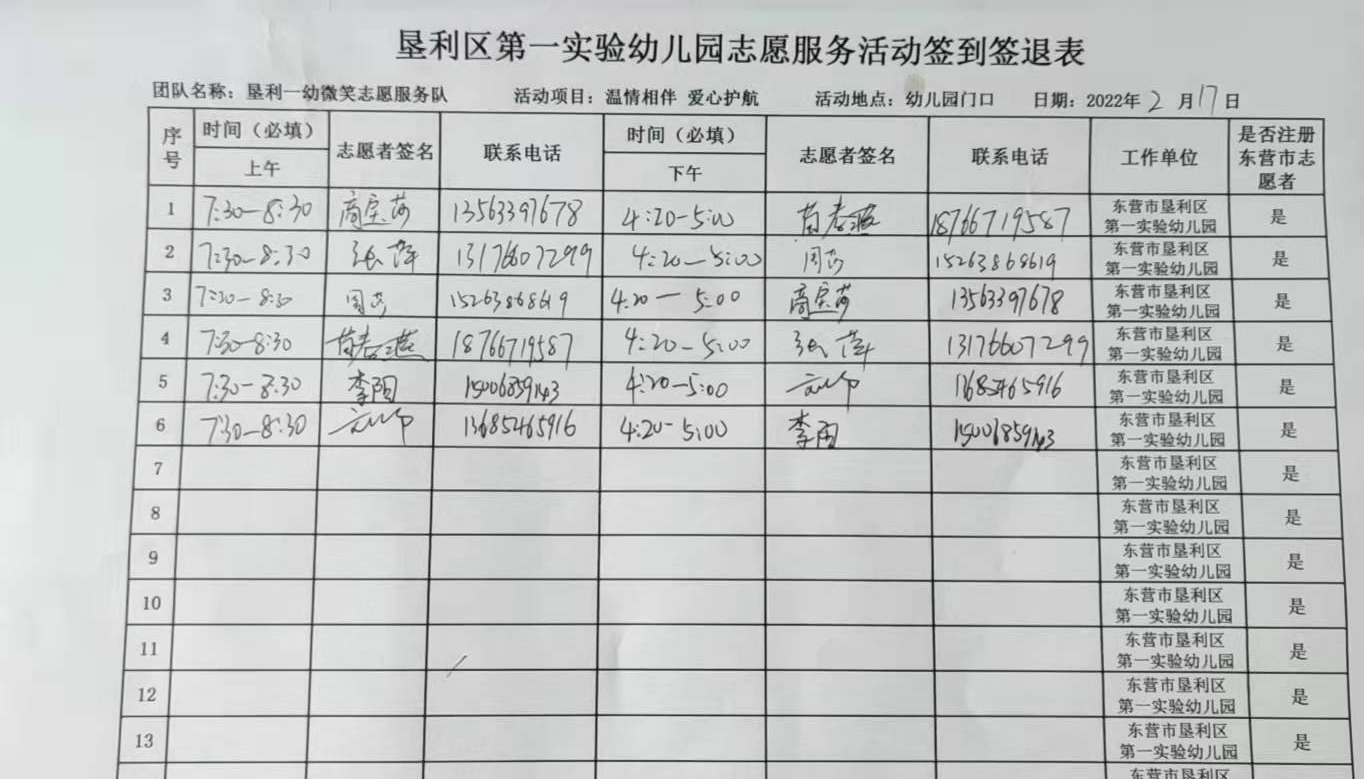 垦利区第一实验幼儿园志愿服务活动签到签退表
团队名称：垦利一幼微笑志愿服务队 活动项目：温情相伴 爱心护航 活动地点：幼儿园门口 日期：2022年2月17日
序号 时间（必填） 志愿者签名 联系电话 时间（必填） 志愿者签名 联系电话 工作单位 是否注册东营市志愿者
上午 下午
1 7:30-8:30 高宗莎 13563397678 4:20-5:00 苗春燕 18766719587 东营市垦利区第一实验幼儿园 是
2 7:30-8:30 张萍 13176607299 4:20-5:00 周莎 15263868619 东营市垦利区第一实验幼儿园 是
3 7:30-8:30 周莎 15263868619 4:20-5:00 高宗莎 13563397678 东营市垦利区第一实验幼儿园 是
4 7:30-8:30 苗春燕 18766719587 4:20-5:00 张萍 13176607299 东营市垦利区第一实验幼儿园 是
5 7:30-8:30 李阳 15006859143 4:20-5:00 13685465916 东营市垦利区第一实验幼儿园 是
6 7:30-8:30 13685465916 4:20-5:00 李阳 15006859143 东营市垦利区第一实验幼儿园 是
7 东营市垦利区第一实验幼儿园 是
8 东营市垦利区第一实验幼儿园 是
9 东营市垦利区第一实验幼儿园 是
10 东营市垦利区第一实验幼儿园 是
11 东营市垦利区第一实验幼儿园 是
12 东营市垦利区第一实验幼儿园 是
13 东营市垦利区第一实验幼儿园 是
东营市垦利区